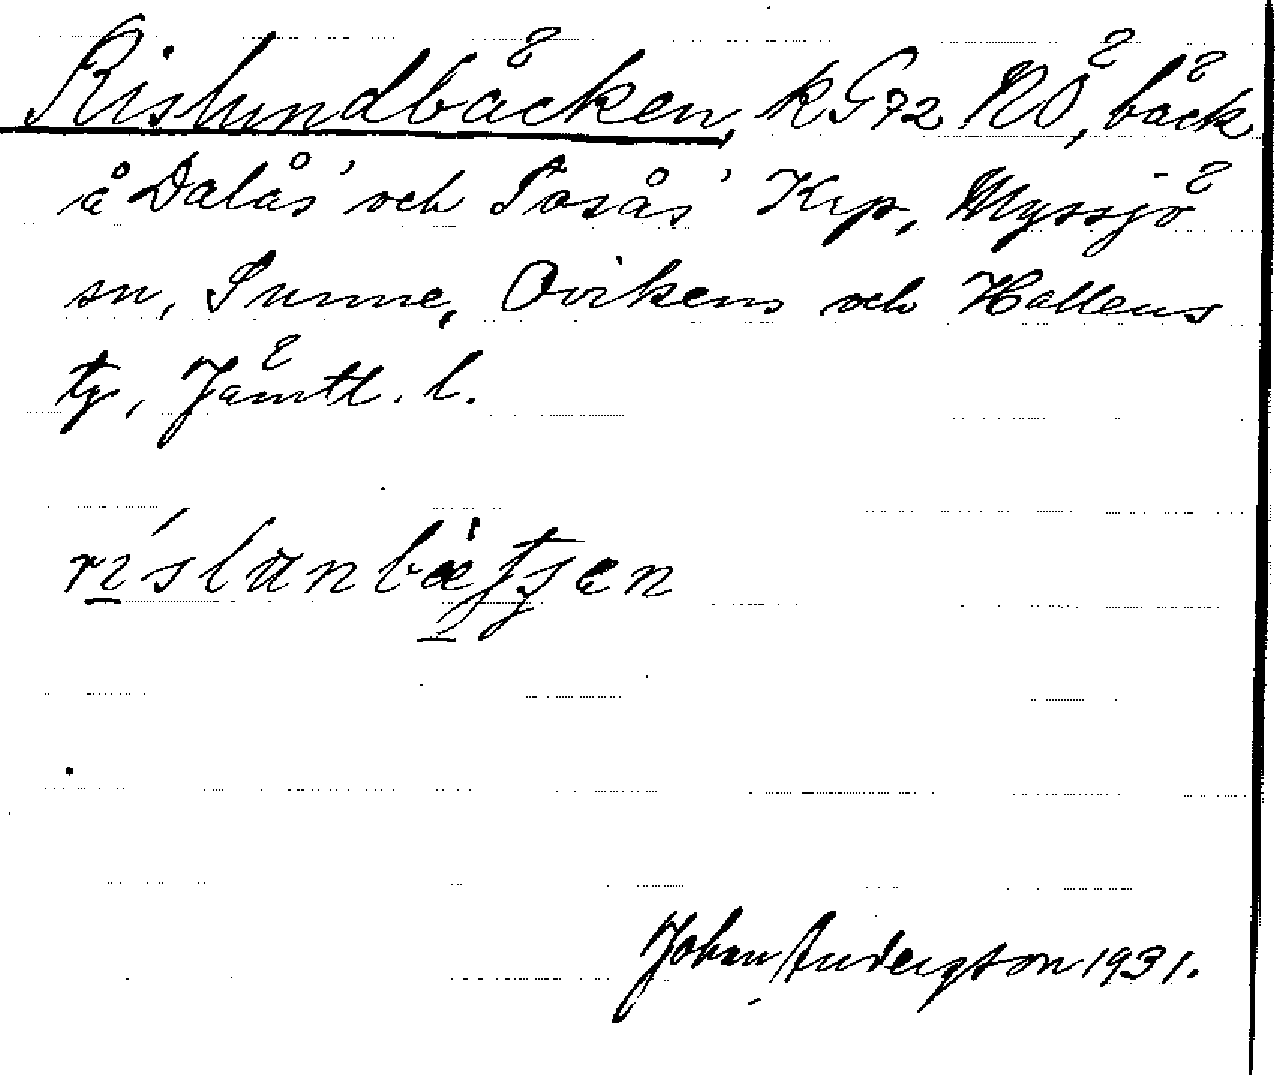 Rislundbäcken, kG72 NÖ, bäck
å Dalås' och Tosås' Krp, Myssjö
sn, Sunne, Ovikens och Hallens
tg, Jämtl. l.
Johan Andersson 1931.